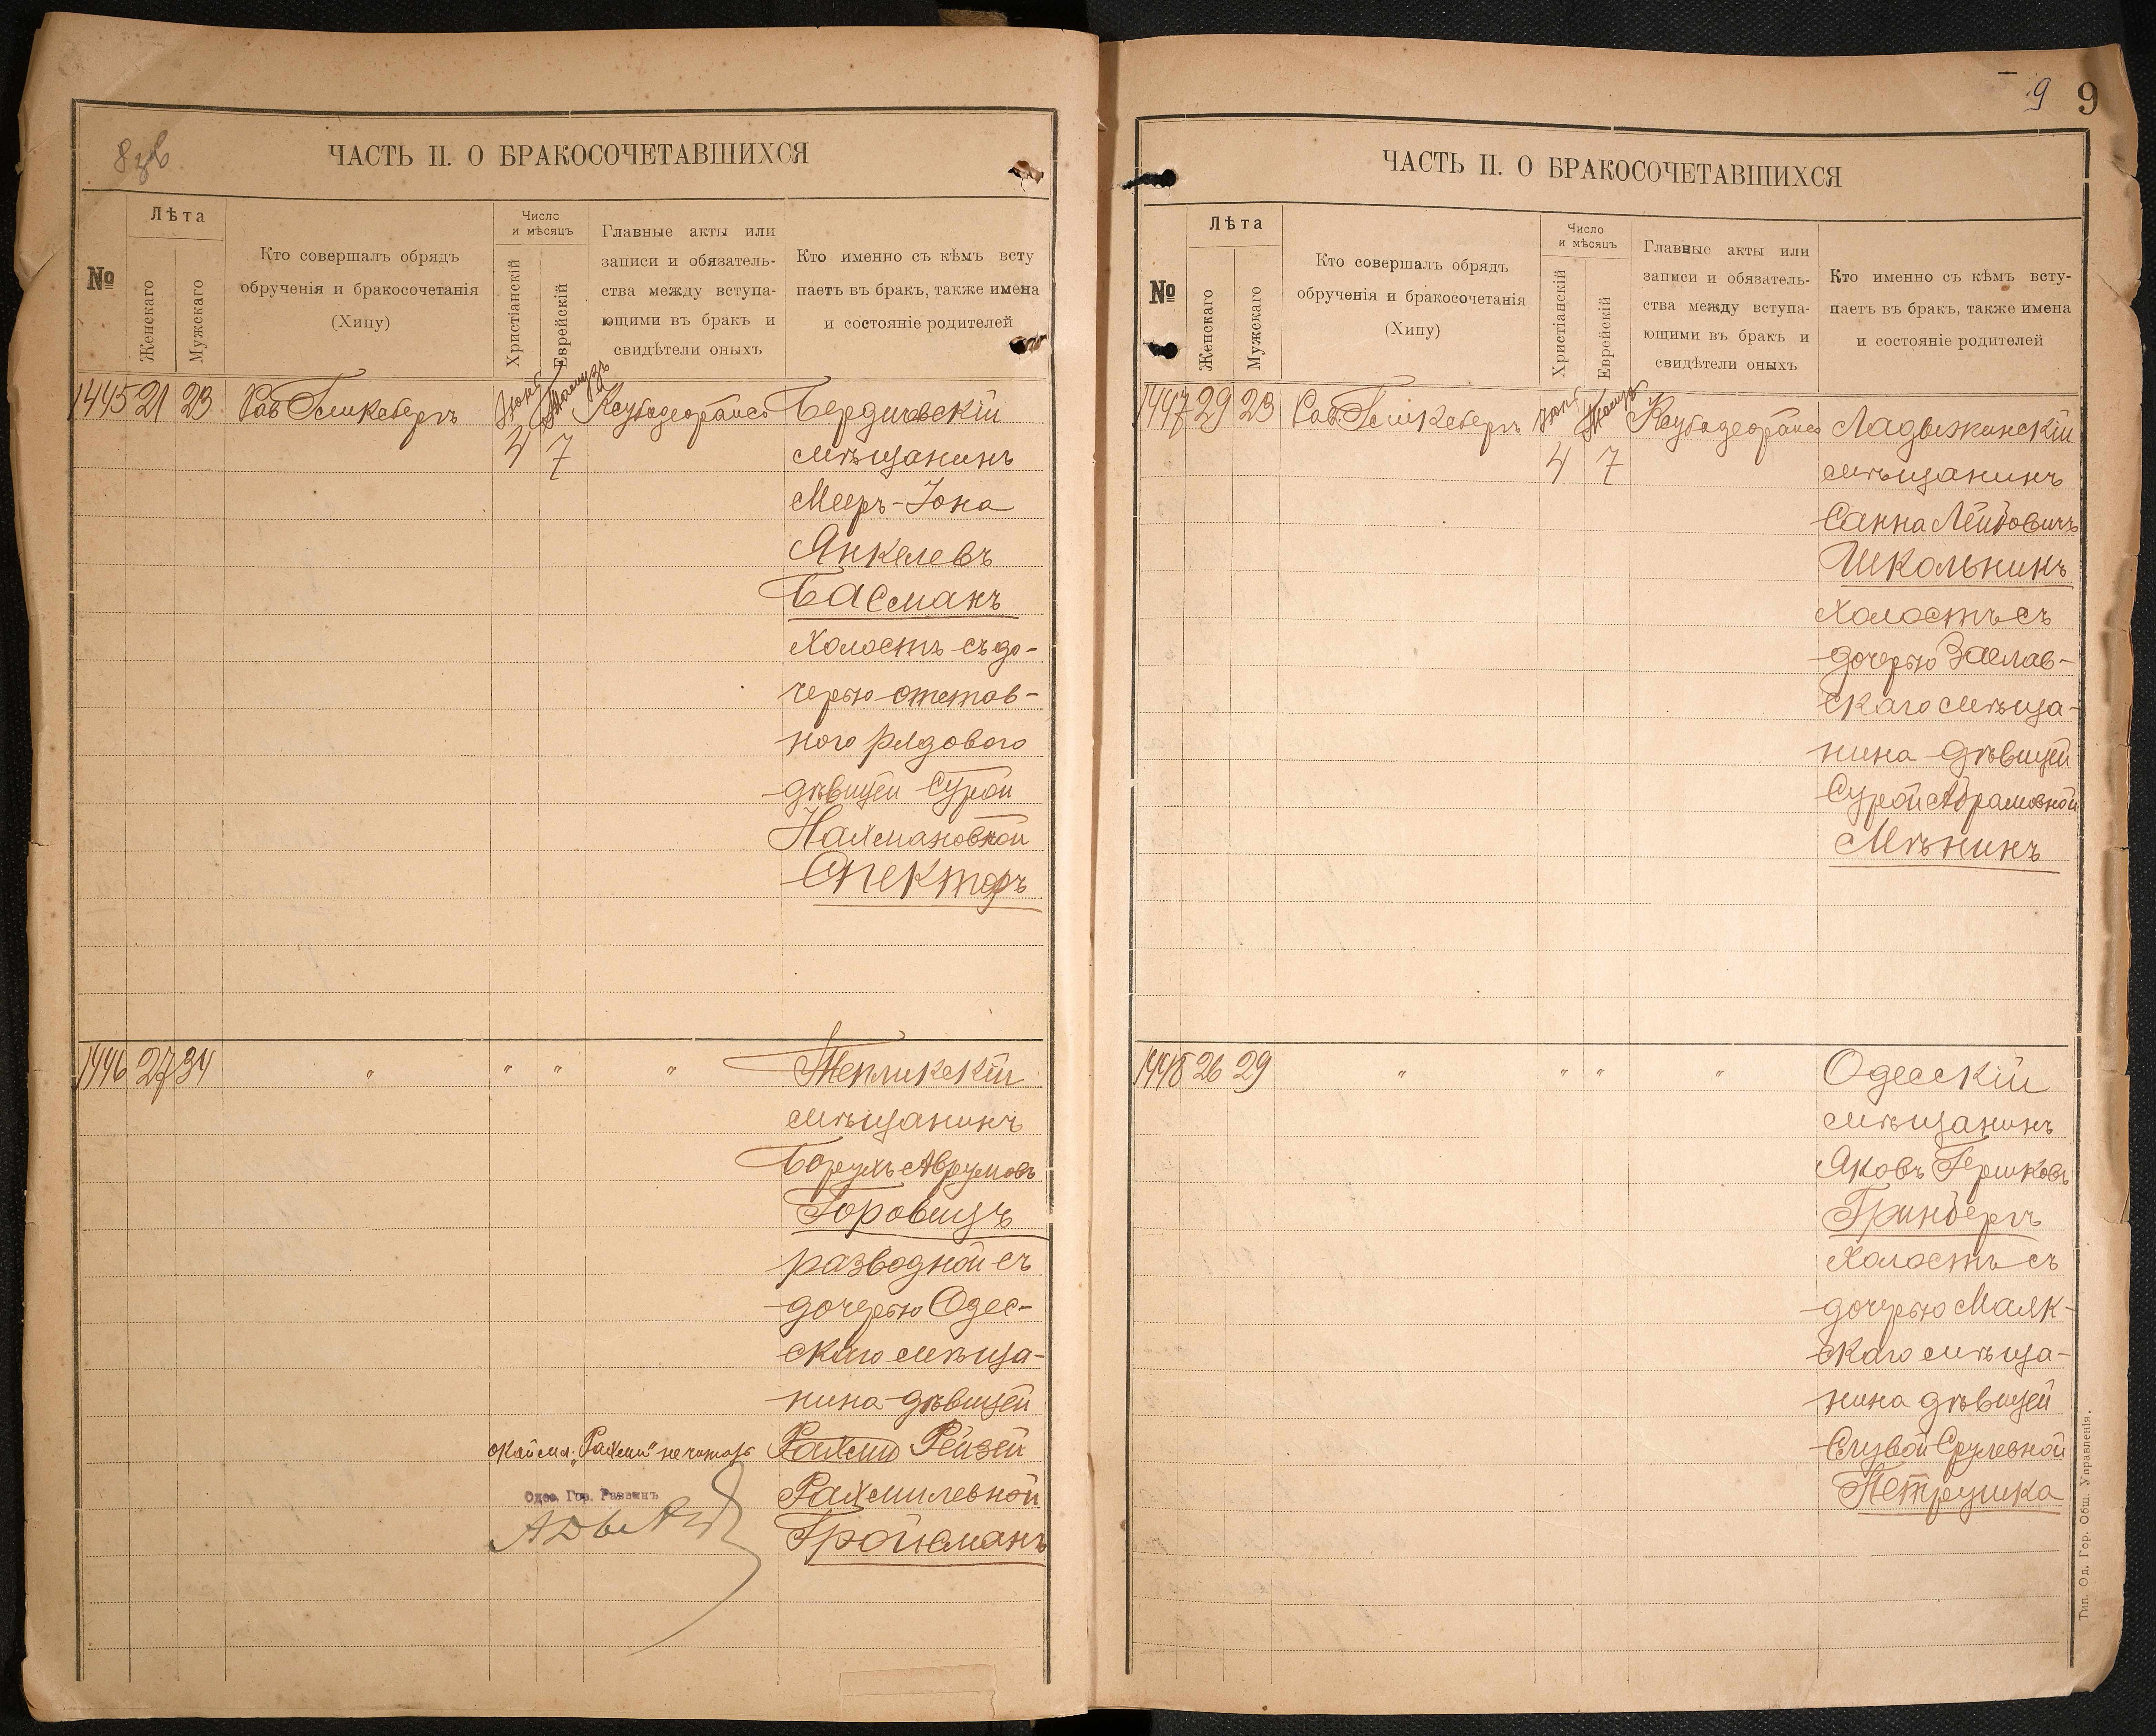 8 зв
ЧАСТЬ II. О БРАКОСОЧЕТАВШИХСЯ
№
Лѣта
Женскаго
Мужскаго
Кто совершалъ обрядъ
обрученія и бракосочетанія
(Хипу)
Число
и мѣсяцъ
Христіанскій
Еврейскій
Главные акты или
записи и обязатель-
ства между вступа-
ющими въ бракъ и
свидѣтели оныхъ
Кто именно съ кѣмъ всту
паетъ въ бракъ, также имена
и состояніе родителей
1445 21 23
7
Бердичевскій
мѣщанинъ
Мееръ-Іона
Янкелевъ
Басманъ
холостъ съ до-
черью отстав-
ного рядового
дѣвицей Сурой
Нахмановной
Спекторъ
1446 27 34 " " " "
Тепликскій
мѣщанинъ
Борухъ Аврумовъ
Горовицъ
разводной съ
дочерью Одес-
скаго мѣща-
нина дѣвицей
Рейзей
Рахмилевной
Гройсманъ
Одес. Гор. Раввинъ
9
9
ЧАСТЬ II. О БРАКОСОЧЕТАВШИХСЯ
№
Лѣта
Женскаго
Мужскаго
Кто совершалъ обрядъ
обрученія и бракосочетанія
(Хипу)
Число
и мѣсяцъ
Христіанскій
Еврейскій
Главные акты или
записи и обязатель-
ства между вступа-
ющими въ бракъ и
свидѣтели оныхъ
Кто именно съ кѣмъ всту-
паетъ въ бракъ, также имена
и состояніе родителей
1447 29 23
4 7
Ладыжинскій
мѣщанинъ
Школьникъ
холостъ съ
дочерью Заслав-
скаго мѣща-
нина дѣвицей
Сурой Абрамовной
Мѣникъ
1448 26 29 " " " "
Одесскій
мѣщанинъ
Яковъ Гершковъ
Гринбергъ
холостъ съ
дочерью Маяк-
скаго мѣща-
нина дѣвицей
Срулевной
Петрушка
Тип. Од. Гор. Общ. Управленія.